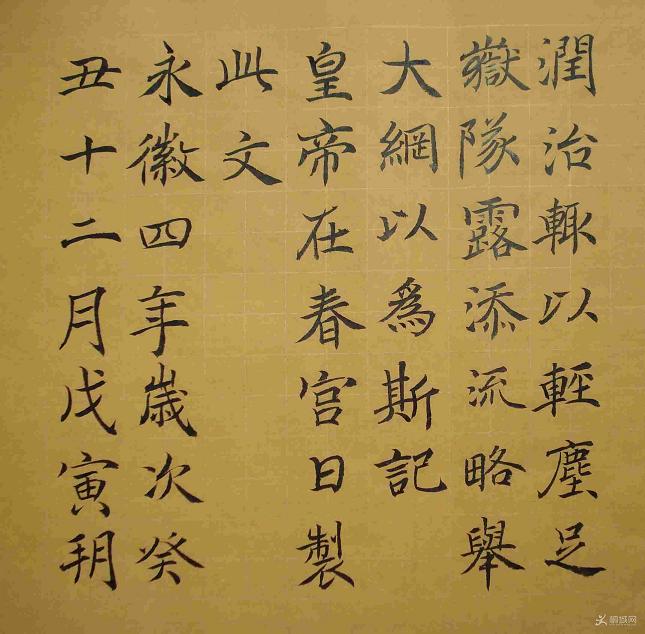 潤治輙以輕塵足
嶽隊露添流略舉
大綱以爲斯記
皇帝在春宮日製
此文
永徽四年歳次癸
丑十二月戊寅朔
桐城网